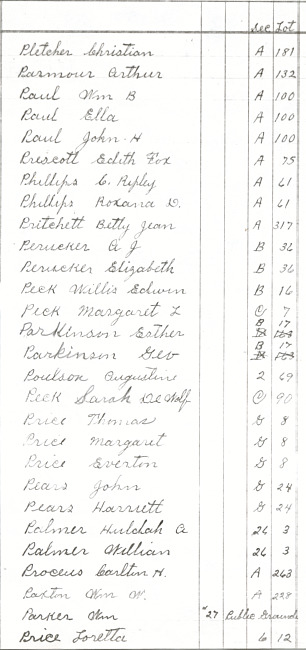 Sec Lot
Pletcher Christian A 181
Parmour Arthur A 132
Paul Wm B A 100
Paul Ella A 100
Paul John H A 100
Prescott Edith Fox A 75
Phillips C. Ripley A 61
Phillips Roxana D. A 61
Pritchett Betty Jean A 317
Perucker A J B 36
Perucker Elizabeth B 36
Peck Willis Edwin B 16
Peck Margaret L C 7
Parkinson Esther B 17
Parkinson Geo B 17
Poulson Augustine 2 69
Peek Sarah DeWolf C 90
Price Thomas G 8
Price Margaret G 8
Price Everton G 8
Pears John G 24
Pears Harriett G 24
Palmer Huldah A 26 3
Palmer Willian 26 3
Proceus Carlton H. A 263
Paxton Wm W. A 228
Parker Wm "27 Public Grounds
Price Loretta 6 12